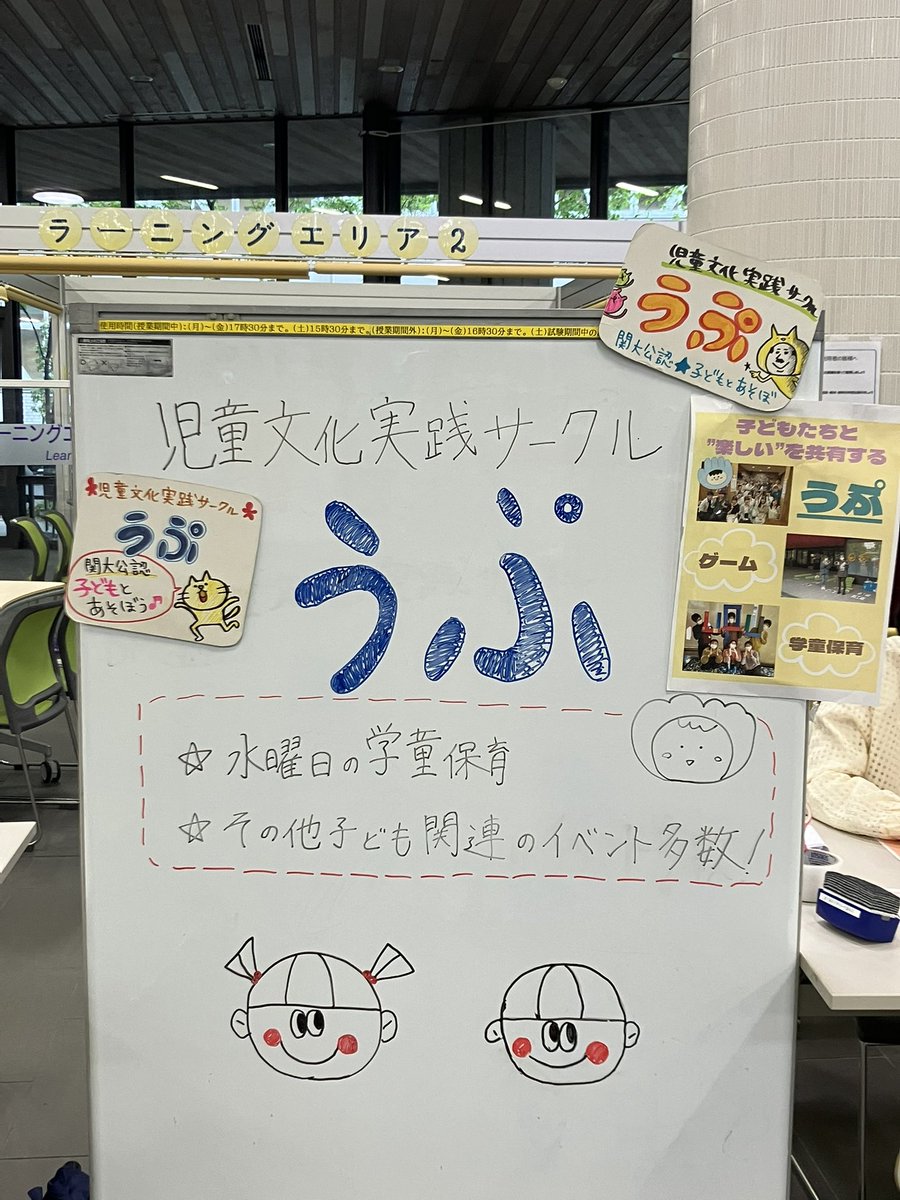 ラーニングエリア2
使用時間(授業期間中):(月)~(金)17時30分まで。(土)15時30分まで。(授業期間外):(月)~(金)16時30分まで。(土)試験期間中の
児童文化実践サークル
うぷ
関大公認★子どもとあそぼ
児童文化実践サークル
うぷ
児童文化実践サークル
うぷ
関大公認
子どもと
あそぼう♪
子どもたちと
"楽しい"を共有する
うぷ
ゲーム
学童保育
☆水曜日の学童保育
☆その他子ども関連のイベント多数!
ーニングエ
Lear